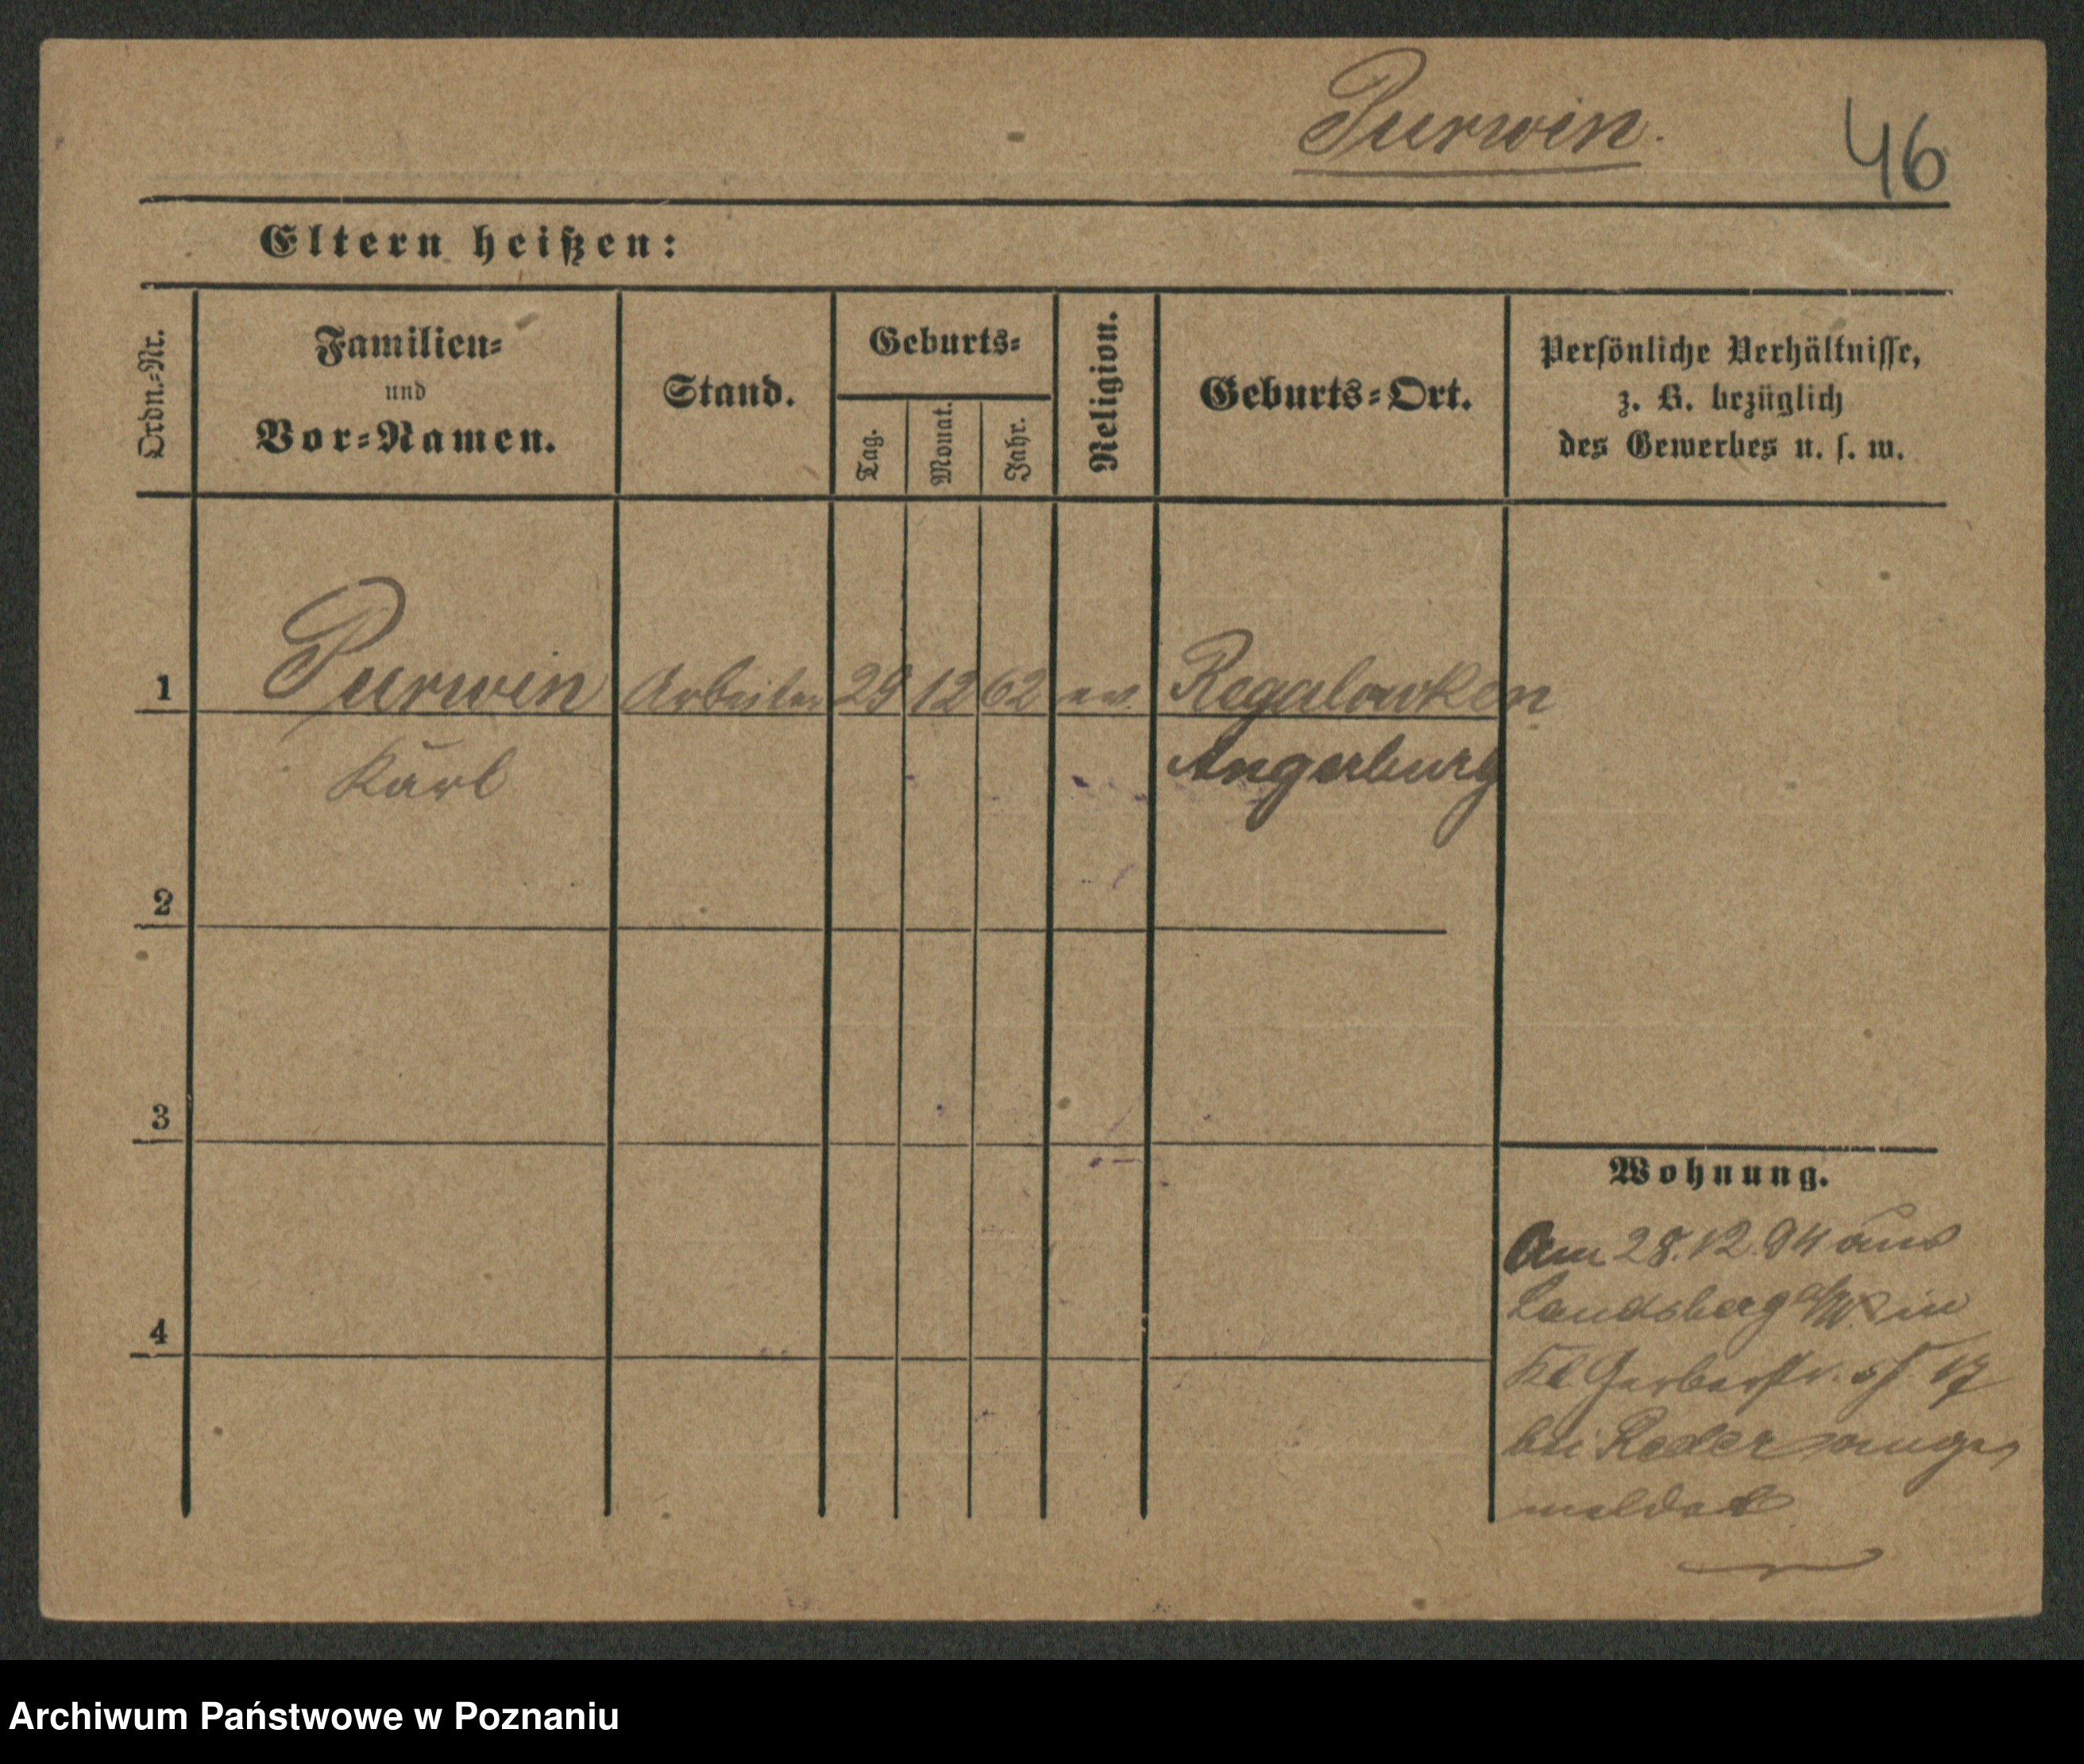 Purwin.
46
Eltern heißen:
Ordn.-Nr.
Familien-
und
Vor-Namen.
Stand.
Geburts-
Tag.
Monat.
Jahr.
Religion.
Geburts-Ort.
Persönliche Verhältnisse,
z. B. bezüglich
des Gewerbes u. s. w.
1
Purwin
Arbeiter
29
12
62
ev.
Regulowken
Karl
Angerburg
2
3
4
Wohnung.
Am 28.12.94 aus
Landsberg a/W. in
Kl Gerberstr. 17
bei Reder ange-
meldet
Archiwum Państwowe w Poznaniu